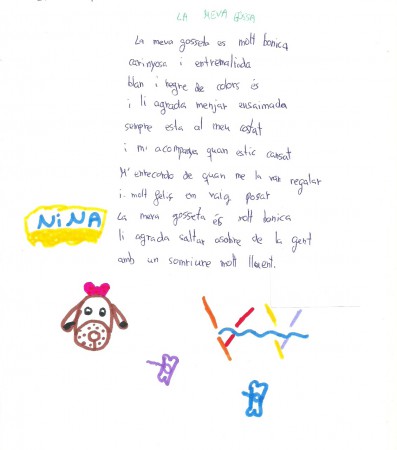 LA MEVA GOSSA
La meva gosseta es molt bonica
carinyosa i entremaliada
blan i negre de colors és
i li agrada menjar ensaimada
sempre esta al meu costat
i m'acompanya quan estic cansat
M'enrecordo de quan me la van regalar
i molt feliç em vaig posar
NiNA
La meva gosseta és molt bonica
li agrada saltar asobre de la gent
amb un somriure molt lluent.